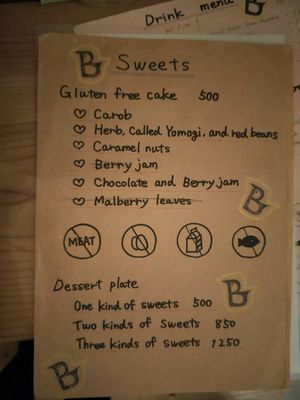 Drink menu
B
Sweets
Gluten free cake 500
Carob
Herb, Called Yomogi, and red beans
Caramel nuts
Berry jam
Chocolate and Berry jam
Malberry leaves
B
MEAT
Dessert plate
B
One kind of sweets 500
Two kinds of Sweets 850
Three kinds of sweets 1250
B